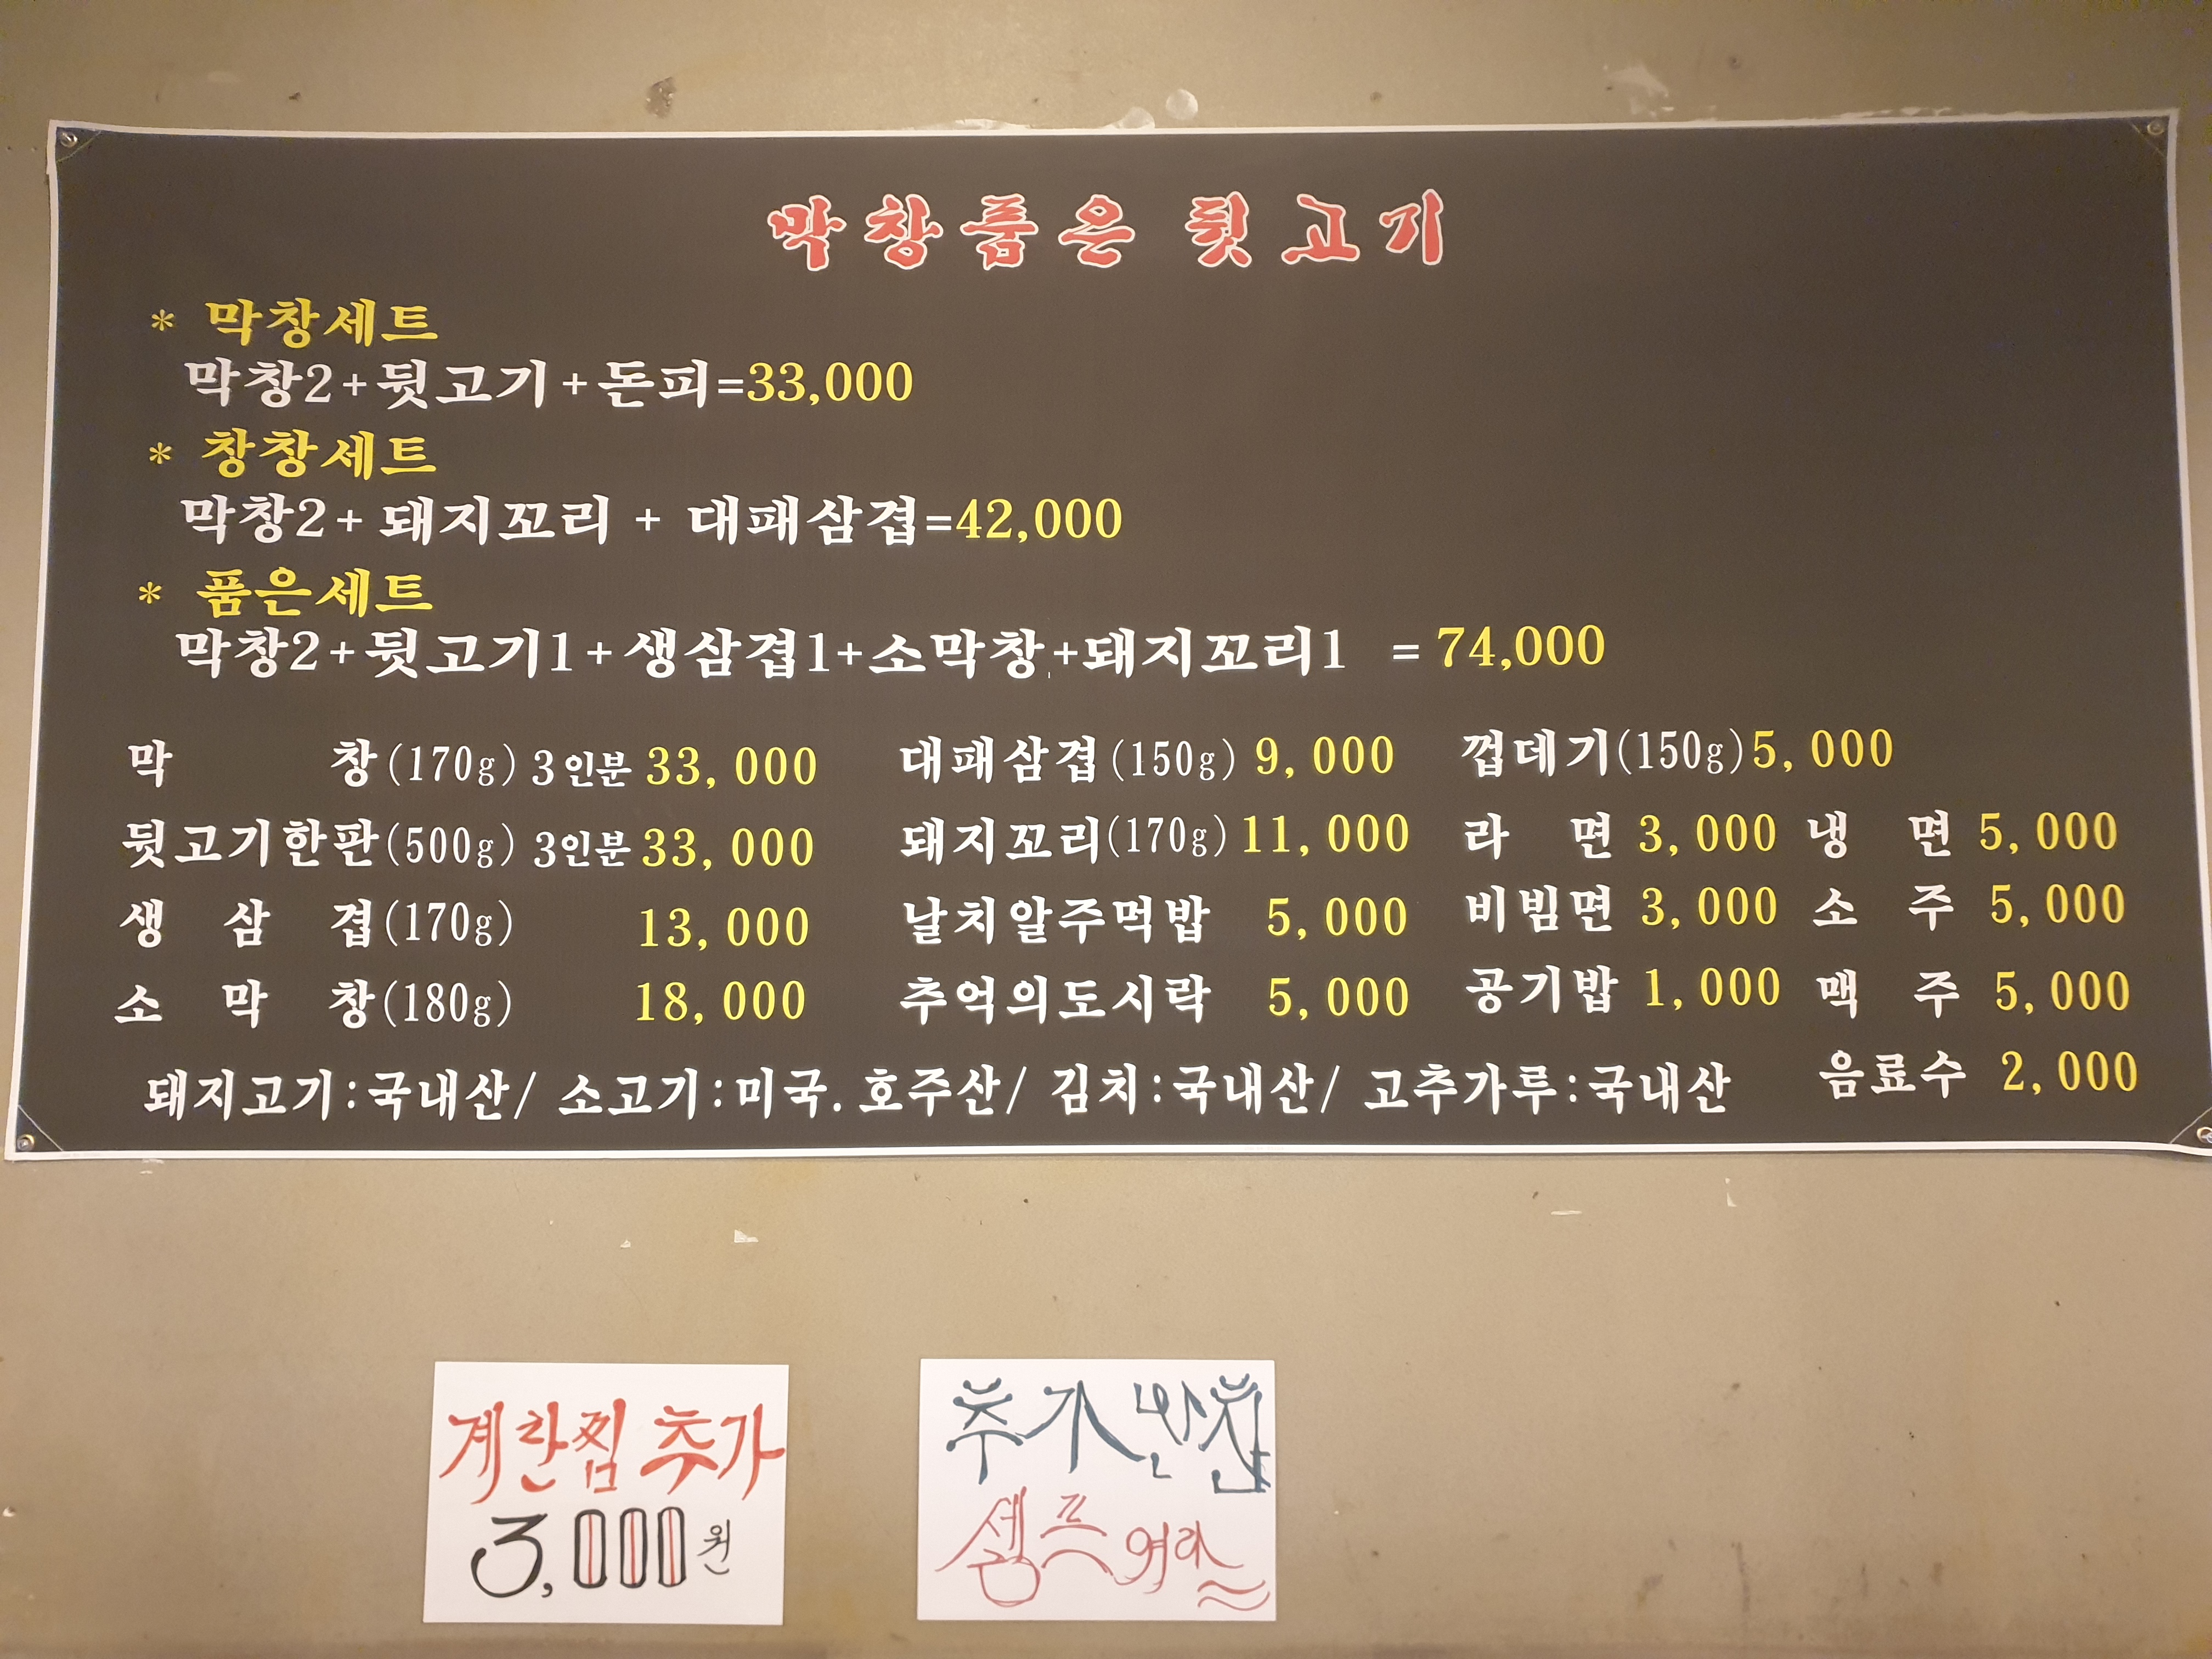 막창품은 뒷고기
* 막창세트
막창2+뒷고기+돈피=33,000
* 창창세트
막창2+ 돼지꼬리 + 대패삼겹=42,000
* 품은세트
막창2+뒷고기1+생삼겹1+소막창+돼지꼬리1 = 74,000
막 창(170g) 3인분 33,000 대패삼겹(150g) 9,000 껍데기(150g) 5,000
뒷고기한판(500g) 3인분 33,000 돼지꼬리(170g) 11,000 라 면 3,000 냉 면 5,000
생 삼 겹(170g) 13,000 날치알주먹밥 5,000 비빔면 3,000 소 주 5,000
소 막 창(180g) 18,000 추억의도시락 5,000 공기밥 1,000 맥 주 5,000
돼지고기:국내산/ 소고기:미국.호주산/ 김치:국내산/ 고추가루:국내산 음료수 2,000
계란찜 추가
3,000원
추가반찬
셈프여라